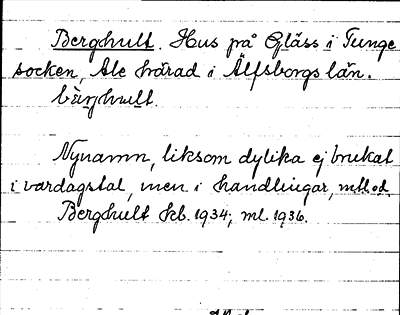 Berghult. Hus på Gläss i Tunge
socken, Ale härad i Älfsborgs län.
bärjhult.
Nynamn, liksom dylika ej brukat
i vardagstal, men i handlingar,
Berghult kb. 1934; ml. 1936.